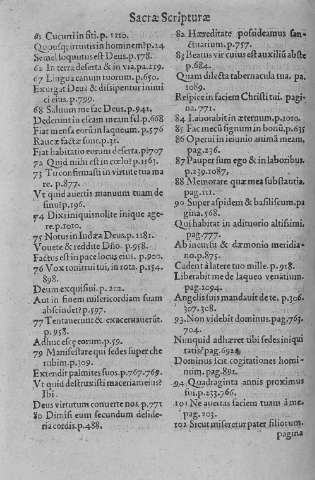 Sacræ Scripturæ
61 Cucurri in siti. p. 1210.
Quousq; irruitis in hominem? p.14
Semel loquutus est Deus. p.578.
62 In terra deserta & in via. pa.219.
67 Lingua canum tuorum. p.650.
Exurgat Deus & dissipentur inimi
ci eius. p.799.
68 Saluum me fac Deus. p.941.
Dederunt in escam meam fel p.668
Fiat mensa eorum in laqueum. p.576
Raucæ factæ sunt. p.31.
Fiat habitatio eorum deserta. p1707
72 Quid mihi est in cœlo? p.1163.
73 Tu confirmasti in virtute tua ma
re. p.877.
Vt quid auertis manuum tuam de
sinu? p.196.
74 Dixi iniquis nolite inique age-
re. p.1010.
75 Notus in Iudæa Deus. p.1181.
Vouete & reddite Dño. p.958.
Factus est in pace locus eius. p.900.
76 Vox tonitrui tui, in rota. p.154.
898.
Deum exquisiui. p.212.
Aut in finem misericordiam suam
abscindet? p.597.
77 Tentauerunt & exacerauerũt.
p.958.
Adhuc escę eorum. p.59.
79 Manifestare qui sedes super che
rubim. p.309.
Extendit palmites suos. p.767.769.
Vt quid destruxisti maceriam eius?
Ibi.
Deus virtutum conuerte nos. p.771
80 Dimisi eum secundum deside-
ria cordis. p.488.
82 Hæreditate possideamus san-
ctuarium. p.757.
83 Beatus vir cuius est auxiliũ abs te
p.684.
Quam dilecta tabernacula tua. pa.
1089.
Respice in faciem Christi tui. pagi-
na.771.
84 Laborabit in æternum. p.1010.
85 Fac mecũ signum in bonũ. p.635
86 Operui in ieiunio animã meam,
pag.236.
87 Pauper sum ego & in laboribus.
p.239.1087,
88 Memorare quæ mea substãtia.
pag.111.
90 Super aspidem & basiliscum. pa
gina.568.
Qui habitat in adiutorio altissimi.
pag.777.
Ab incursu & dæmonio meridia-
no. p.875.
Cadent à latere tuo mille. p.918.
Liberabit me de laqueo venatium.
pag.1094.
Angelis suis mandauit de te. p.306.
307.308.
93 Non videbit dominus. pag.763.
704.
Nunquid adhæret tibi sedes iniqui
tatis? pag.692.
Dominus scit cogitationes homi-
num. pag.891.
94 Quadraginta annis proximus
fui. p.233.766.
101 Ne auertas faciem tuam à me.
pag.103.
102 Sicut miseretur pater filiorum.
pagina